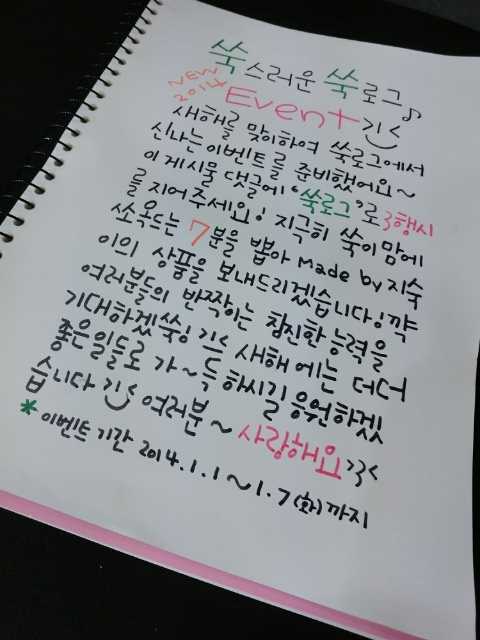 쑥스러운 쑥로그♪
NEW 2014 Event 기<
새해를 맞이하여 쑥로그에서
신나는 이벤트를 준비했어요~
이 게시물 댓글에 "쑥로그"로 3행시
를 지어주세요! 지극히 쑥이 맘에
쏘옥드는 7분을 뽑아 made by 지숙
이의 상품을 보내드리겠습니다! 꺅
여러분들의 반짝이는 참진한 능력을
기대하겠쑥! 기< 새해에는 더더
좋은일들로 가~득하시길 응원하겠
습니다 기< 여러분~ 사랑해요 >3<
* 이벤트 기간 2014.1.1~1.7(화)까지